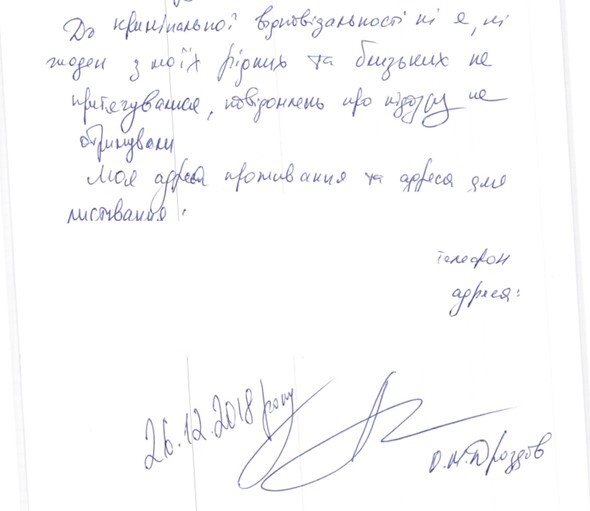 До кримінальної відповідальності ні я, ні
жоден з моїх рідних та близьких не
притягувався, повідомлень про підозру не
отримували
Моя адреса проживання та адреса для
листування:
телефон
адреса:
26.12.2018 року
О.М.Дроздов